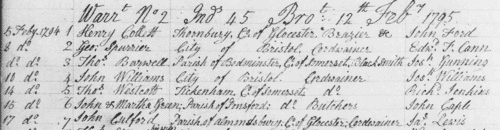 Warrt. No 2 Ind. 45 Brot. 12th Feby 1795
5 Feby. 1794 1 Henry Collett Thornbury, C. of Glocester Brazier &c John Ford
8 do. 2 Geo. Spurrier City of Bristol, Cordwainer Edwd. T. Cann
do. do. 3 Thos. Barwell Parish of Bedminster, C. of Somerset, Black Smith Jos. Gunning
10 do. 4 John Williams City of Bristol Cordwainer Jos. Williams
14 do. 5 Thos. Westcott Tickenham, C. of Somerset, do. Richd. Jenkins
15 do. 6 John & Martha Green; Parish of do. Butchers John Caple
17 do. 7 John Parish of Almondsbury C. of Glocester; Cordwainer Jas. Lewis